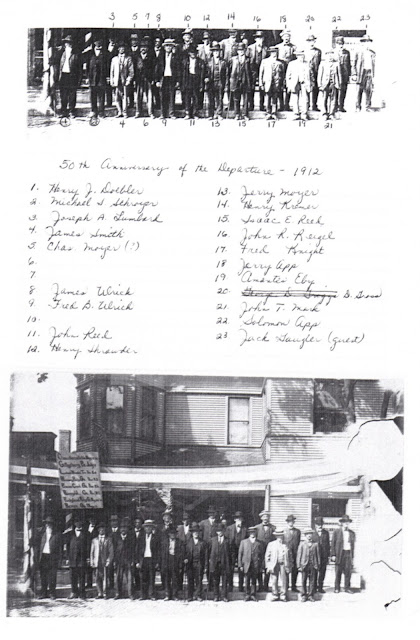 3 5 7 8 10 12 14 16 18 20 22 23
1 2 4 6 9 11 13 15 17 19 21
50th Anniversary of the Departure - 1912
1. Henry J. Doebler
2. Michael S. Schroyer
3. Joseph A. Lumbard
4. James Smith
5 Chas. Moyer (?)
6.
7
8 James Ulrick
9. Fred B. Ulrick
10.
11. John Reed
12. Henry Shrauder
13. Jerry Moyer
14. Henry Kramer
15. Isaac E. Reed
16. John R. Reigel
17. Fred Knight
18 Jerry App
19 Amantes Eby
20. George D.
21. John T. Mark
22. Solomon App
23 Jack (guest)